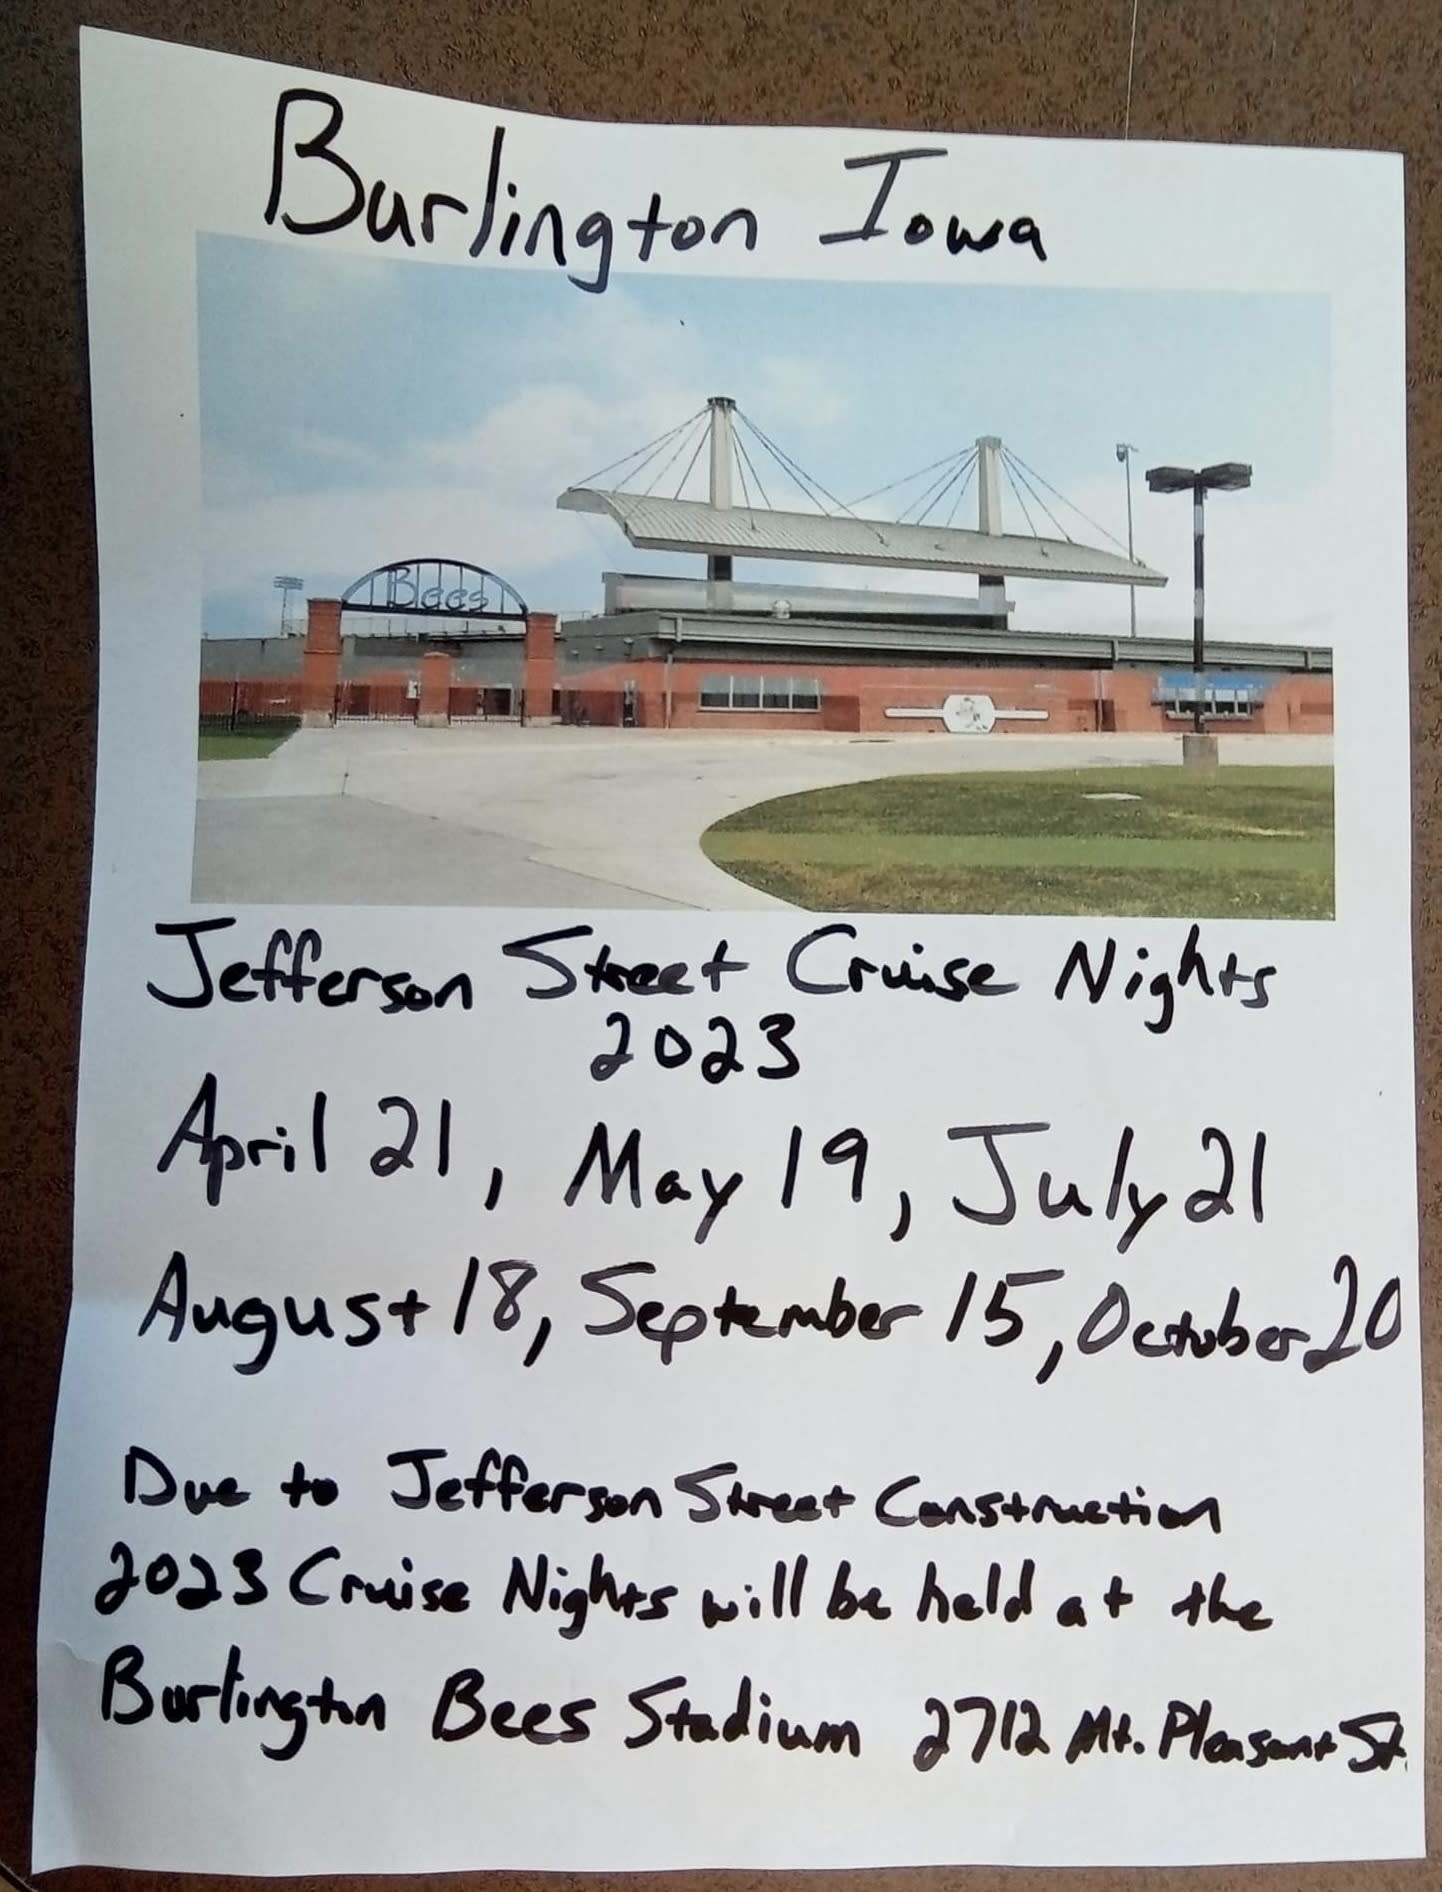 Burlington Iowa
Bees
Jefferson Street Cruise Nights
2023
April 21, May 19, July 21
August 18, September 15, October 20
Due to Jefferson Street Construction
2023 Cruise Nights will be held at the
Burlington Bees Stadium 2712 Mt. Pleasant St.